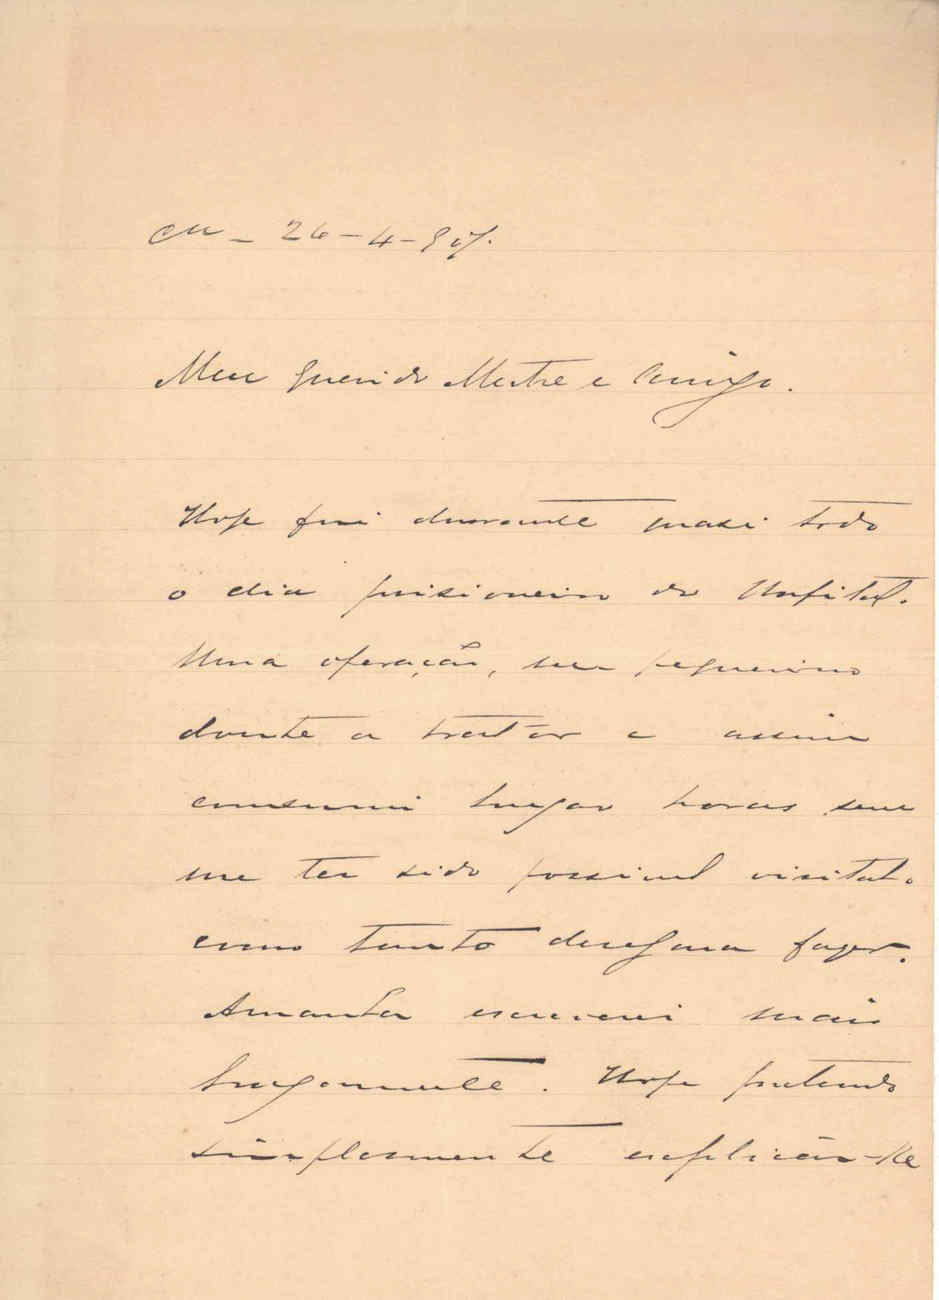 26-4-907.
Meu Querido Mestre e Amigo.
Hoje fui durante quasi todo
o dia prisioneiro do Hospital.
Uma operação, um pequenino
doente a tratar e assim
consumi longas horas sem
me ter sido possivel visital-o
como tanto desejava fazer.
Amanhã escreverei mais
longamente. Hoje pretendo
simplesmente explicar-lhe